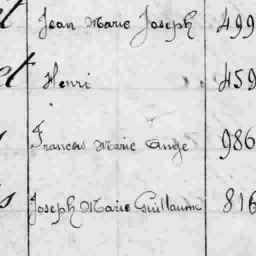 t Jean Marie Joseph 499
et Henri 459
Francois Marie Ange 986
s Joseph Marie Guillaume 816